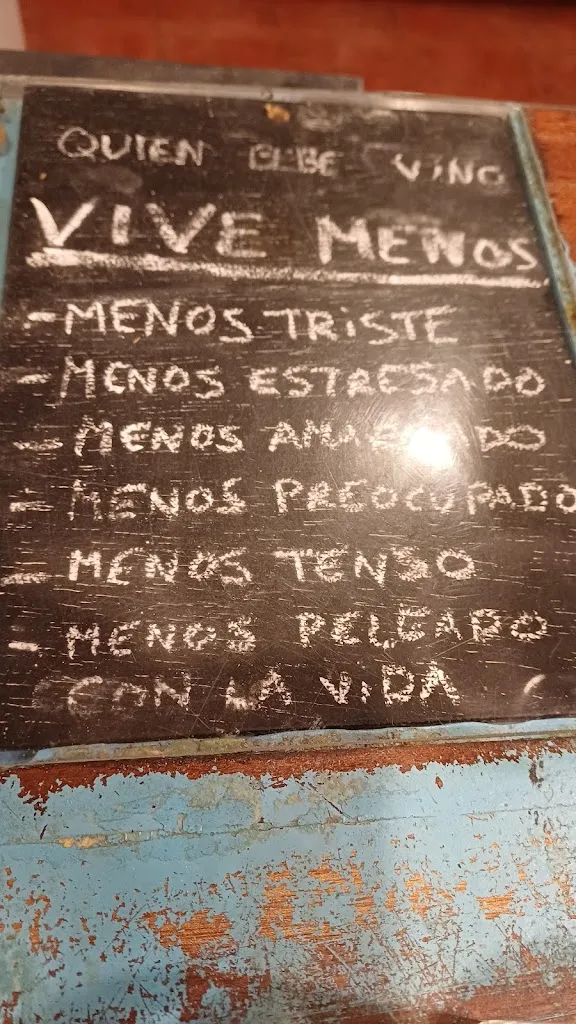 QUIEN BEBE VINO
VIVE MENOS
- MENOS TRISTE
- MENOS ESTRESADO
- MENOS
- MENOS PREOCUPADO
- MENOS TENSO
- MENOS PELEADO
CON LA VIDA